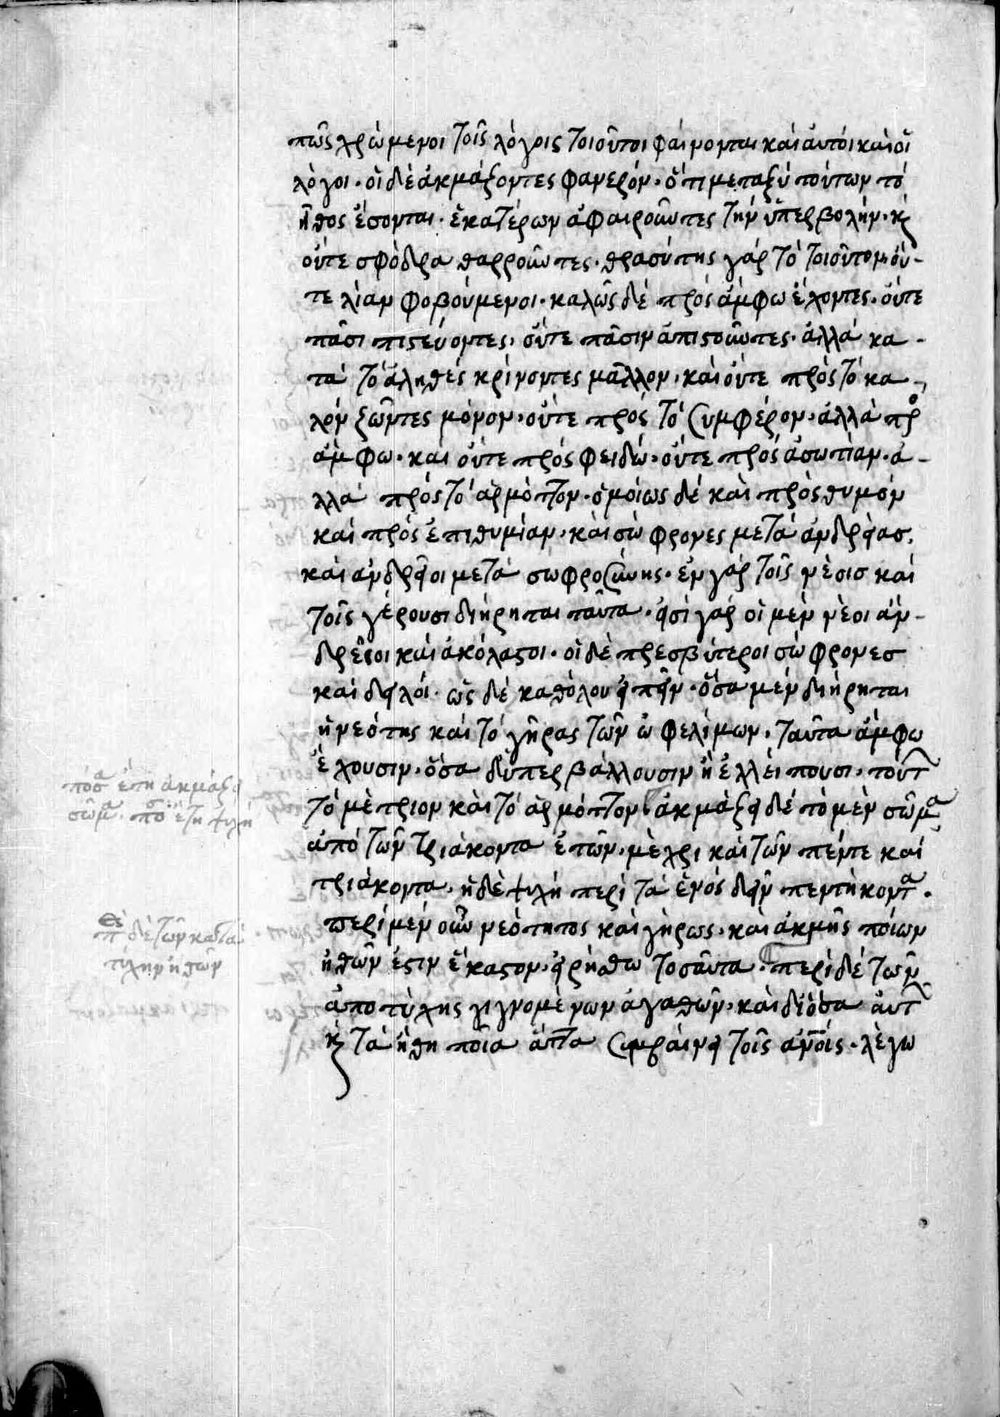 πῶς χρώμενοι τοῖς λόγοις τοιοῦτοι φαίνονται καὶ αὐτοί καὶ οἱ
λόγοι · οἱ δὲ ἀκμάζοντες φανερόν · ὅτι μεταξύ τούτων τό
ἦθος ἔσονται · ἑκατέρων ἀφαιροῦντες τήν ὑπερβολήν · κ
οὔτε σφόδρα θαρροῦντες · θρασύτης γάρ τό τοιοῦτον · οὔ-
τε λίαν φοβούμενοι · καλῶς δέ πρός ἄμφω ἔχοντες · οὔτε
πᾶσι πιστεύοντες, οὔτε πᾶσιν ἀπιστοῦντες · ἀλλά κα-
τά τό ἀληθές κρίνοντες μᾶλλον · καὶ οὔτε πρός τό κα-
λόν ζῶντες μόνον · οὔτε πρός τό συμφέρον · ἀλλά πρ
ἄμφω · και οὔτε πρός φειδώ · οὔτε πρός ἀσωτίαν · ἀ-
λλά πρός τό ἁρμόττον · ὁμοίως δέ καὶ πρός θυμόν
καί πρός ἐπιθυμίαν · καὶ σώφρονες μετά ἀνδρείας.
καὶ ἀνδρεῖοι μετά σωφροσύνης · ἐν γάρ τοῖς νέοισ καί
τοῖς γέρουσι διήρηται ταῦτα · εἰσί γάρ οἱ μέν νέοι ἀν-
δρεῖοι καὶ ἀκόλαστοι · οἱ δὲ πρεσβύτεροι σώφρονεσ
καί δειλοί · ὡς δέ καθόλου εἰπεῖν · ὅσα μέν διήρηται
ἡ νεότης καί τό γῆρας τῶν ὠφελίμων, ταῦτα ἄμφω
ἔχουσιν · ὅσα δ' ὑπερβάλλουσιν ἢ ἐλλείπουσι · τούτ
τό μέτριον καὶ τό ἁρμόττον · ἀκμάζει δέ τὸ μέν σῶμα
ἀπό τῶν τριάκοντα ἐτῶν · μέχρι καί τῶν πέντε καί
τριάκοντα · ἡ δέ ψυχή περί τά ἑνός δεῖν πεντήκοντα ·
περί μέν οὖν νεότητος καί γήρως · καὶ ἀκμῆς ποίων
ἠθῶν ἐστιν ἕκαστον · εἰρήσθω τοσαῦτα · περὶ δέ τῶν
ἀπο τύχης γιγνομένων ἀγαθῶν · καὶ δι' ὅσα αὐτ
κ τά ἤθη ποῖα ἄττα συμβαίνει τοῖς ἀνοῖς · λέγω
πόσα ἔτη ἀκμάζει
σῶμα
π δὲ τῶν κατά
τύχην ἠθῶν